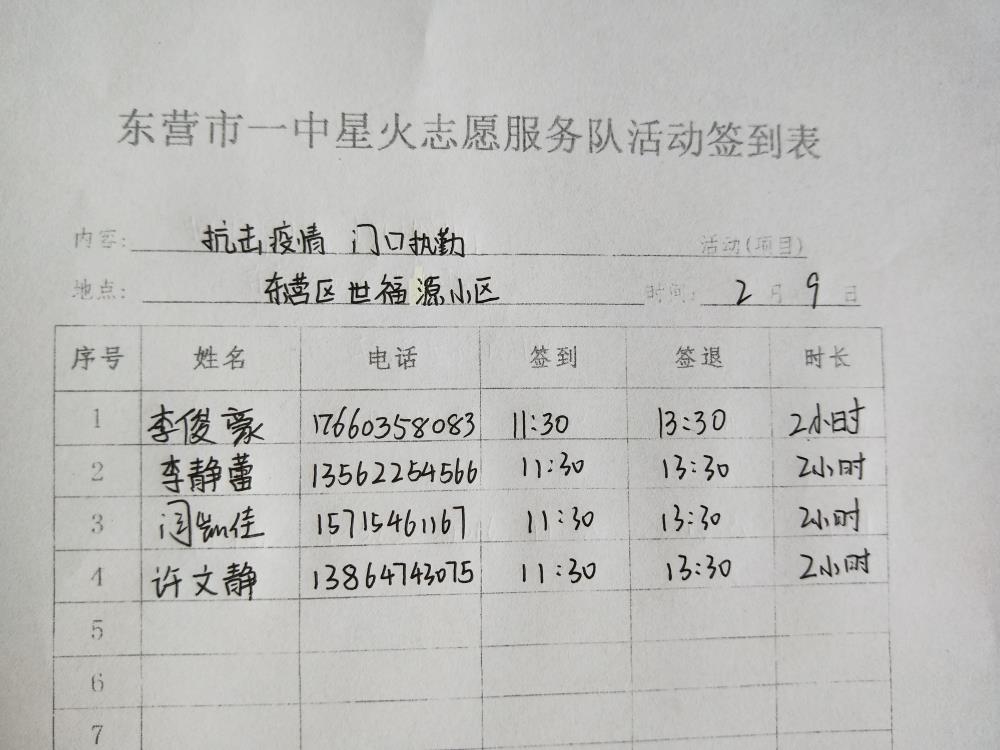 东营市一中星火志愿服务队活动签到表
内容: 抗击疫情 门口执勤 活动(项目)
地点: 东营区世福源小区 时间: 2 月 9 日
序号 姓名 电话 签到 签退 时长
1 李俊豪 17660358083 11:30 13:30 2小时
2 李静蕾 13562254566 11:30 13:30 2小时
3 闫凯佳 15715461167 11:30 13:30 2小时
4 许文静 13864743075 11:30 13:30 2小时
5
6
7